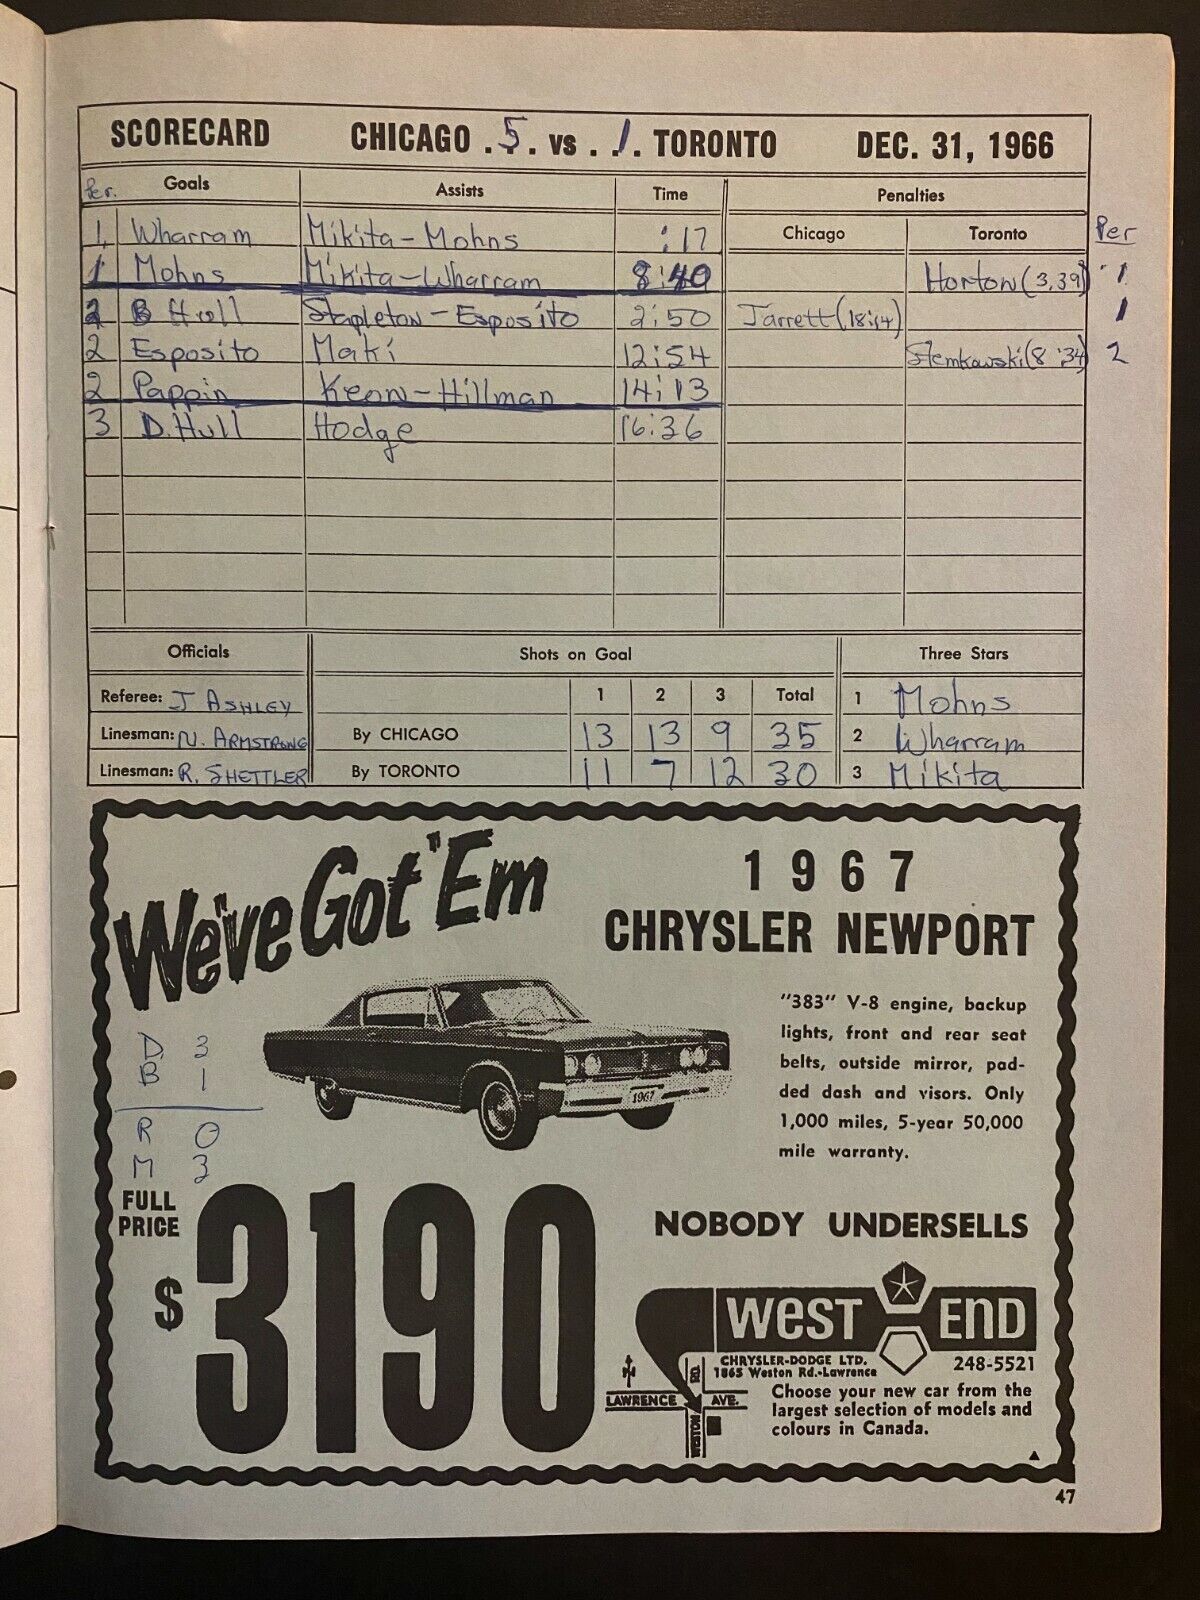 SCORECARD CHICAGO . 5 . vs . 1 . TORONTO DEC. 31, 1966
Per. Goals Assists Time Penalties
Chicago Toronto Per
1 Wharram Mikita-Mohns :17
1 Mohns Mikita-Wharram 8:40 Horton (3,39) 1
2 B Hull Stapleton-Esposito 2:50 Jarrett (18:14) 1
2 Esposito Maki 12:54 Stemkowski (8:34) 2
2 Pappin Keon-Hillman 14:13
3 D. Hull Hodge 16:36
Officials Shots on Goal Three Stars
Referee: J ASHLEY 1 2 3 Total 1 Mohns
Linesman: N. ARMSTRONG By CHICAGO 13 13 9 35 2 Wharram
Linesman: R. SHETTLER By TORONTO 11 7 12 30 3 Mikita
We've Got 'Em
1967
CHRYSLER NEWPORT
"383" V-8 engine, backup
lights, front and rear seat
belts, outside mirror, pad-
ded dash and visors. Only
1,000 miles, 5-year 50,000
mile warranty.
1967
D. 3
B 1
R 0
M 3
FULL
PRICE
$3190
NOBODY UNDERSELLS
WEST END
CHRYSLER-DODGE LTD. 248-5521
1865 Weston Rd.-Lawrence
N
RD.
LAWRENCE AVE.
WESTON
Choose your new car from the
largest selection of models and
colours in Canada.
47